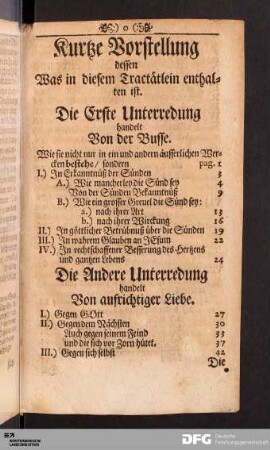 ) o (
Kurtze Vorstellung
dessen
Was in diesem Tractätlein enthal-
ten ist.
Die Erste Unterredung
handelt
Von der Busse.
Wie sie nicht nur in ein und andern äusserlichen Wer-
cken bestehe / sondern pag. 1
I.) In Erkanntnüß der Sünden 3
A.) Wie mancherley die Sünd sey 4
Von der Sünden Bekanntnüß 9
B.) Wie ein grosser Greuel die Sünd sey:
a.) nach ihrer Art 13
b.) nach ihrer Wirckung 16
II.) In göttlicher Betrübnuß über die Sünden 19
III.) In wahrem Glauben an JEsum 22
IV.) In rechtschaffener Besserung des Hertzens
und gantzen Lebens 24
Die Andere Unterredung
handelt
Von aufrichtiger Liebe.
I.) Gegen GOtt 27
II.) Gegen dem Nächsten 30
Auch gegen seinem Feind 33
und die sich vor Zorn hütet. 37
III.) Gegen sich selbst 42
Die
DFG Deutsche
Forschungsgemeinschaft